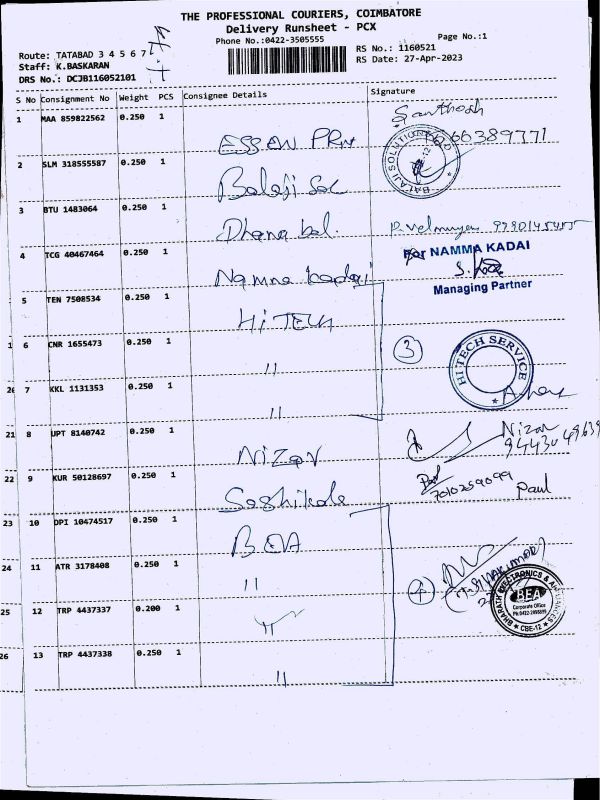 THE PROFESSIONAL COURIERS, COIMBATORE
Delivery Runsheet - PCX
Phone No.:0422-3505555
Page No.:1
Route: TATABAD 3 4 5 6 7
RS No.: 1160521
Staff: K.BASKARAN
RS Date: 27-Apr-2023
DRS No.: DCJB116052101
S No Consignment No Weight PCS Consignee Details Signature
1 MAA 859822562 0.250 1
Santhosh
ESSEN PRN
2 SLM 318555587 0.250 1
BALAJI SOLUTION
Balaji Sol
3 BTU 1483064 0.250 1
Dhana bal.
P. Velmurugan
4 TCG 40467464 0.250 1
For NAMMA KADAI
Namma kadai
Managing Partner
5 TEN 7508534 0.250 1
Hi TECH
1 6 CNR 1655473 0.250 1
"
3
HI TECH SERVICE
20 7 KKL 1131353 0.250 1
"
21 8 UPT 8140742 0.250 1
Nizar
Nizar
22 9 KUR 50128697 0.250 1
Sashikala
7010259099
Paul
23 10 DPI 10474517 0.250 1
BEA
24 11 ATR 3178408 0.250 1
"
4
BHARATH ELECTRONICS & APPLIANCES
BEA
Corporate Office
CBE-12
25 12 TRP 4437337 0.200 1
"
26 13 TRP 4437338 0.250 1
"